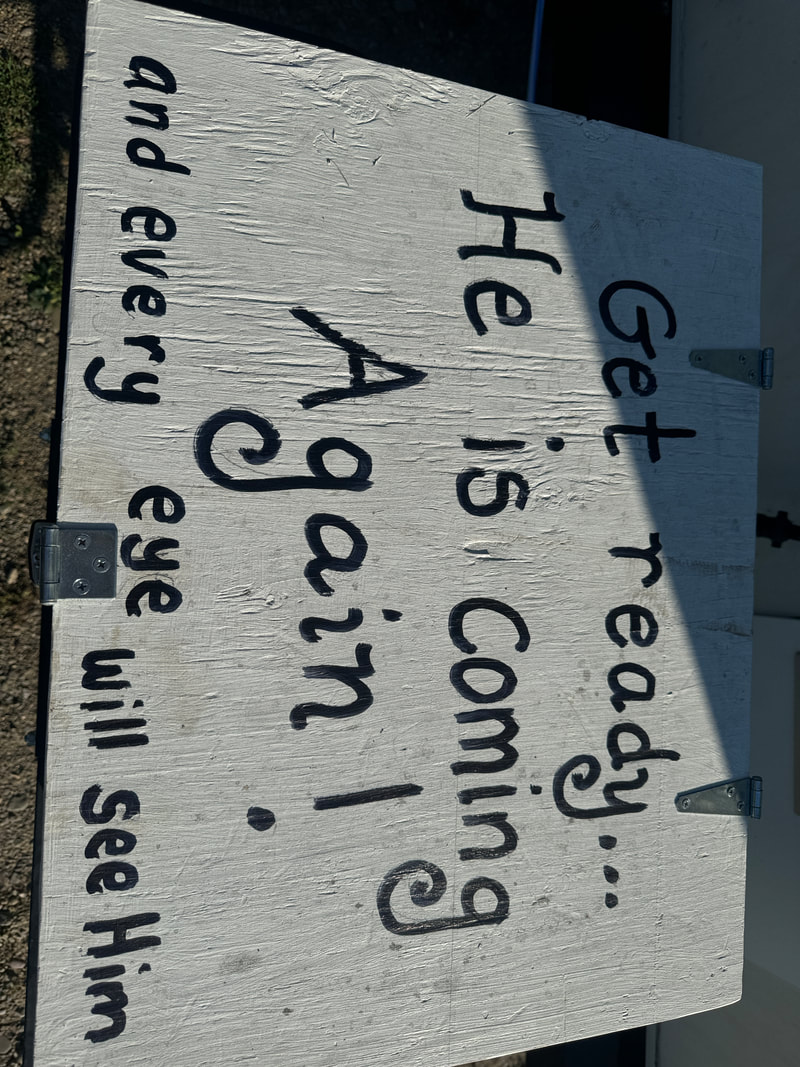 Get ready...
He is coming
Again!
and every eye will see Him